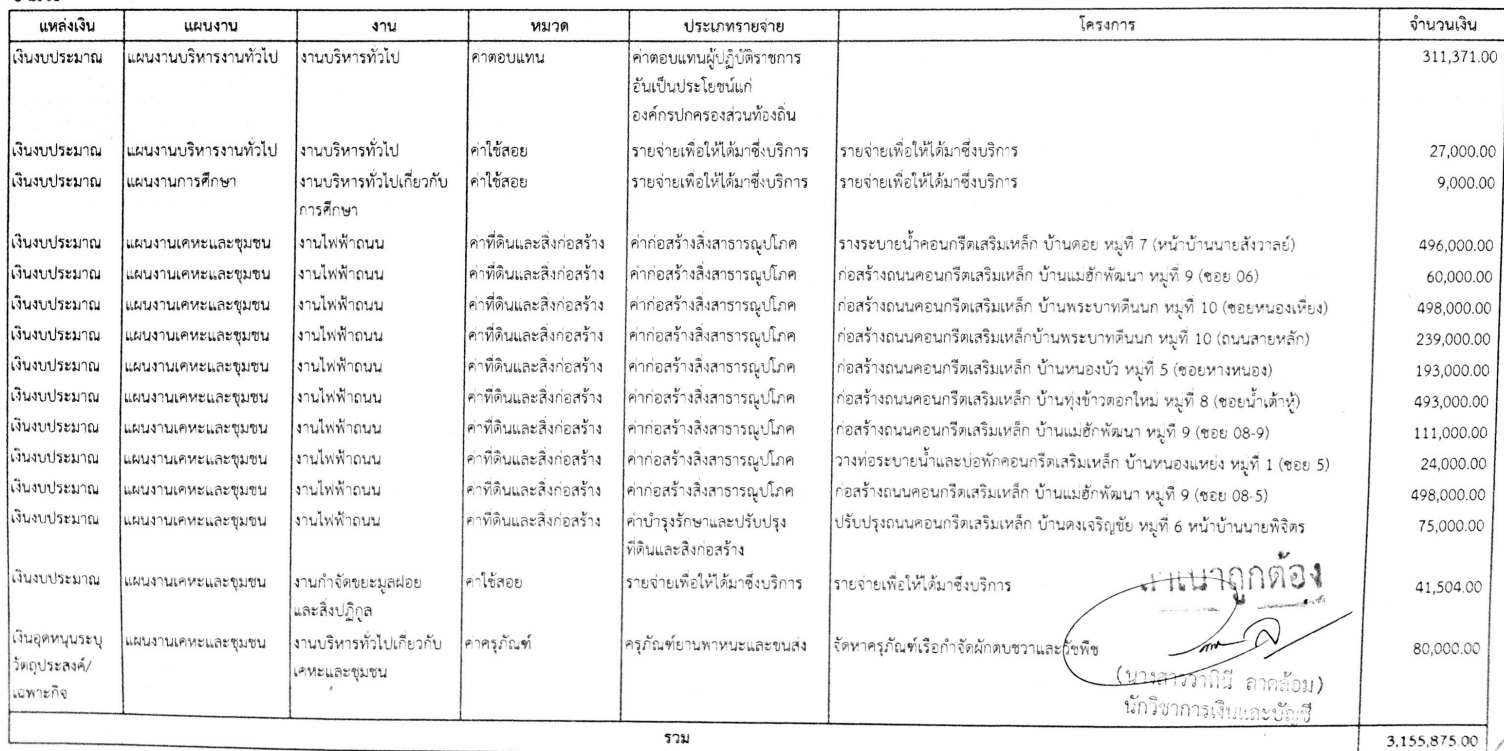 แหล่งเงิน แผนงาน งาน หมวด ประเภทรายจ่าย โครงการ จำนวนเงิน
เงินงบประมาณ แผนงานบริหารงานทั่วไป งานบริหารทั่วไป ค่าตอบแทน ค่าตอบแทนผู้ปฏิบัติราชการ 311,371.00
อันเป็นประโยชน์แก่
องค์กรปกครองส่วนท้องถิ่น
เงินงบประมาณ แผนงานบริหารงานทั่วไป งานบริหารทั่วไป ค่าใช้สอย รายจ่ายเพื่อให้ได้มาซึ่งบริการ รายจ่ายเพื่อให้ได้มาซึ่งบริการ 27,000.00
เงินงบประมาณ แผนงานการศึกษา งานบริหารทั่วไปเกี่ยวกับ ค่าใช้สอย รายจ่ายเพื่อให้ได้มาซึ่งบริการ รายจ่ายเพื่อให้ได้มาซึ่งบริการ 9,000.00
การศึกษา
เงินงบประมาณ แผนงานเคหะและชุมชน งานไฟฟ้าถนน ค่าที่ดินและสิ่งก่อสร้าง ค่าก่อสร้างสิ่งสาธารณูปโภค รางระบายน้ำคอนกรีตเสริมเหล็ก บ้านดอย หมู่ที่ 7 (หน้าบ้านนายสังวาลย์) 496,000.00
เงินงบประมาณ แผนงานเคหะและชุมชน งานไฟฟ้าถนน ค่าที่ดินและสิ่งก่อสร้าง ค่าก่อสร้างสิ่งสาธารณูปโภค ก่อสร้างถนนคอนกรีตเสริมเหล็ก บ้านแม่ฮักพัฒนา หมู่ที่ 9 (ซอย 06) 60,000.00
เงินงบประมาณ แผนงานเคหะและชุมชน งานไฟฟ้าถนน ค่าที่ดินและสิ่งก่อสร้าง ค่าก่อสร้างสิ่งสาธารณูปโภค ก่อสร้างถนนคอนกรีตเสริมเหล็ก บ้านพระบาทตีนนก หมู่ที่ 10 (ซอยหนองเหียง) 498,000.00
เงินงบประมาณ แผนงานเคหะและชุมชน งานไฟฟ้าถนน ค่าที่ดินและสิ่งก่อสร้าง ค่าก่อสร้างสิ่งสาธารณูปโภค ก่อสร้างถนนคอนกรีตเสริมเหล็กบ้านพระบาทตีนนก หมู่ที่ 10 (ถนนสายหลัก) 239,000.00
เงินงบประมาณ แผนงานเคหะและชุมชน งานไฟฟ้าถนน ค่าที่ดินและสิ่งก่อสร้าง ค่าก่อสร้างสิ่งสาธารณูปโภค ก่อสร้างถนนคอนกรีตเสริมเหล็ก บ้านหนองบัว หมู่ที่ 5 (ซอยหางหนอง) 193,000.00
เงินงบประมาณ แผนงานเคหะและชุมชน งานไฟฟ้าถนน ค่าที่ดินและสิ่งก่อสร้าง ค่าก่อสร้างสิ่งสาธารณูปโภค ก่อสร้างถนนคอนกรีตเสริมเหล็ก บ้านทุ่งข้าวตอกใหม่ หมู่ที่ 8 (ซอยน้ำเต้าหู้) 493,000.00
เงินงบประมาณ แผนงานเคหะและชุมชน งานไฟฟ้าถนน ค่าที่ดินและสิ่งก่อสร้าง ค่าก่อสร้างสิ่งสาธารณูปโภค ก่อสร้างถนนคอนกรีตเสริมเหล็ก บ้านแม่ฮักพัฒนา หมู่ที่ 9 (ซอย 08-9) 111,000.00
เงินงบประมาณ แผนงานเคหะและชุมชน งานไฟฟ้าถนน ค่าที่ดินและสิ่งก่อสร้าง ค่าก่อสร้างสิ่งสาธารณูปโภค วางท่อระบายน้ำและบ่อพักคอนกรีตเสริมเหล็ก บ้านหนองแหย่ง หมู่ที่ 1 (ซอย 5) 24,000.00
เงินงบประมาณ แผนงานเคหะและชุมชน งานไฟฟ้าถนน ค่าที่ดินและสิ่งก่อสร้าง ค่าก่อสร้างสิ่งสาธารณูปโภค ก่อสร้างถนนคอนกรีตเสริมเหล็ก บ้านแม่ฮักพัฒนา หมู่ที่ 9 (ซอย 08-5) 498,000.00
เงินงบประมาณ แผนงานเคหะและชุมชน งานไฟฟ้าถนน ค่าที่ดินและสิ่งก่อสร้าง ค่าบำรุงรักษาและปรับปรุง ปรับปรุงถนนคอนกรีตเสริมเหล็ก บ้านดงเจริญชัย หมู่ที่ 6 หน้าบ้านนายพิจิตร 75,000.00
ที่ดินและสิ่งก่อสร้าง
เงินงบประมาณ แผนงานเคหะและชุมชน งานกำจัดขยะมูลฝอย ค่าใช้สอย รายจ่ายเพื่อให้ได้มาซึ่งบริการ รายจ่ายเพื่อให้ได้มาซึ่งบริการ สำเนาถูกต้อง 41,504.00
และสิ่งปฏิกูล
เงินอุดหนุนระบุ แผนงานเคหะและชุมชน งานบริหารทั่วไปเกี่ยวกับ ค่าครุภัณฑ์ ครุภัณฑ์ยานพาหนะและขนส่ง จัดหาครุภัณฑ์เรือกำจัดผักตบชวาและวัชพืช 80,000.00
วัตถุประสงค์/ เคหะและชุมชน
เฉพาะกิจ
(นางสาววาทินี ลาดล้อม)
นักวิชาการเงินและบัญชี
รวม 3,155,875.00